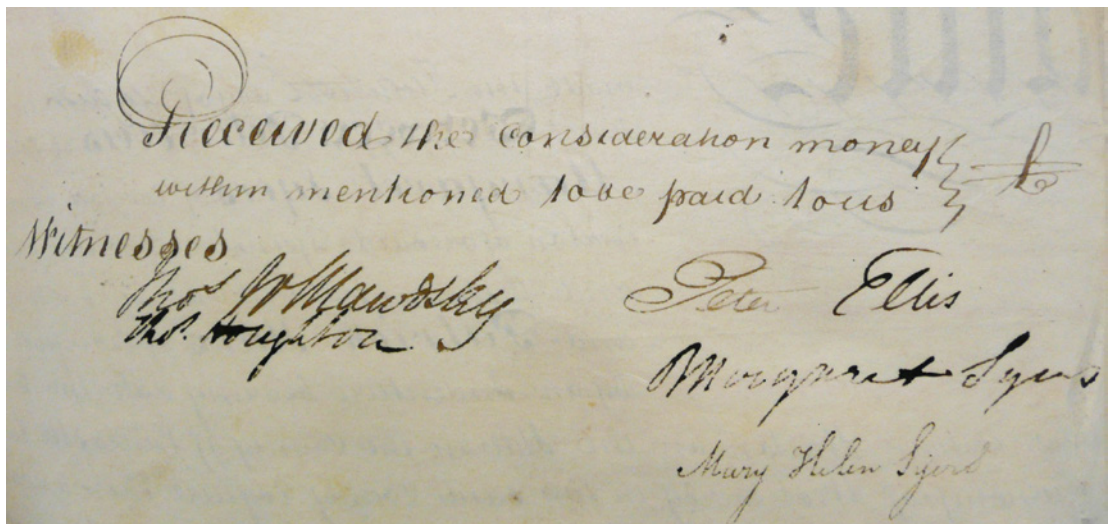 Received the Consideration money
within mentioned to be paid to us
Witnesses
Thos W Mawdsley
Thos. Houghton
Peter Ellis
Margaret Syers
Mary Helen Syers